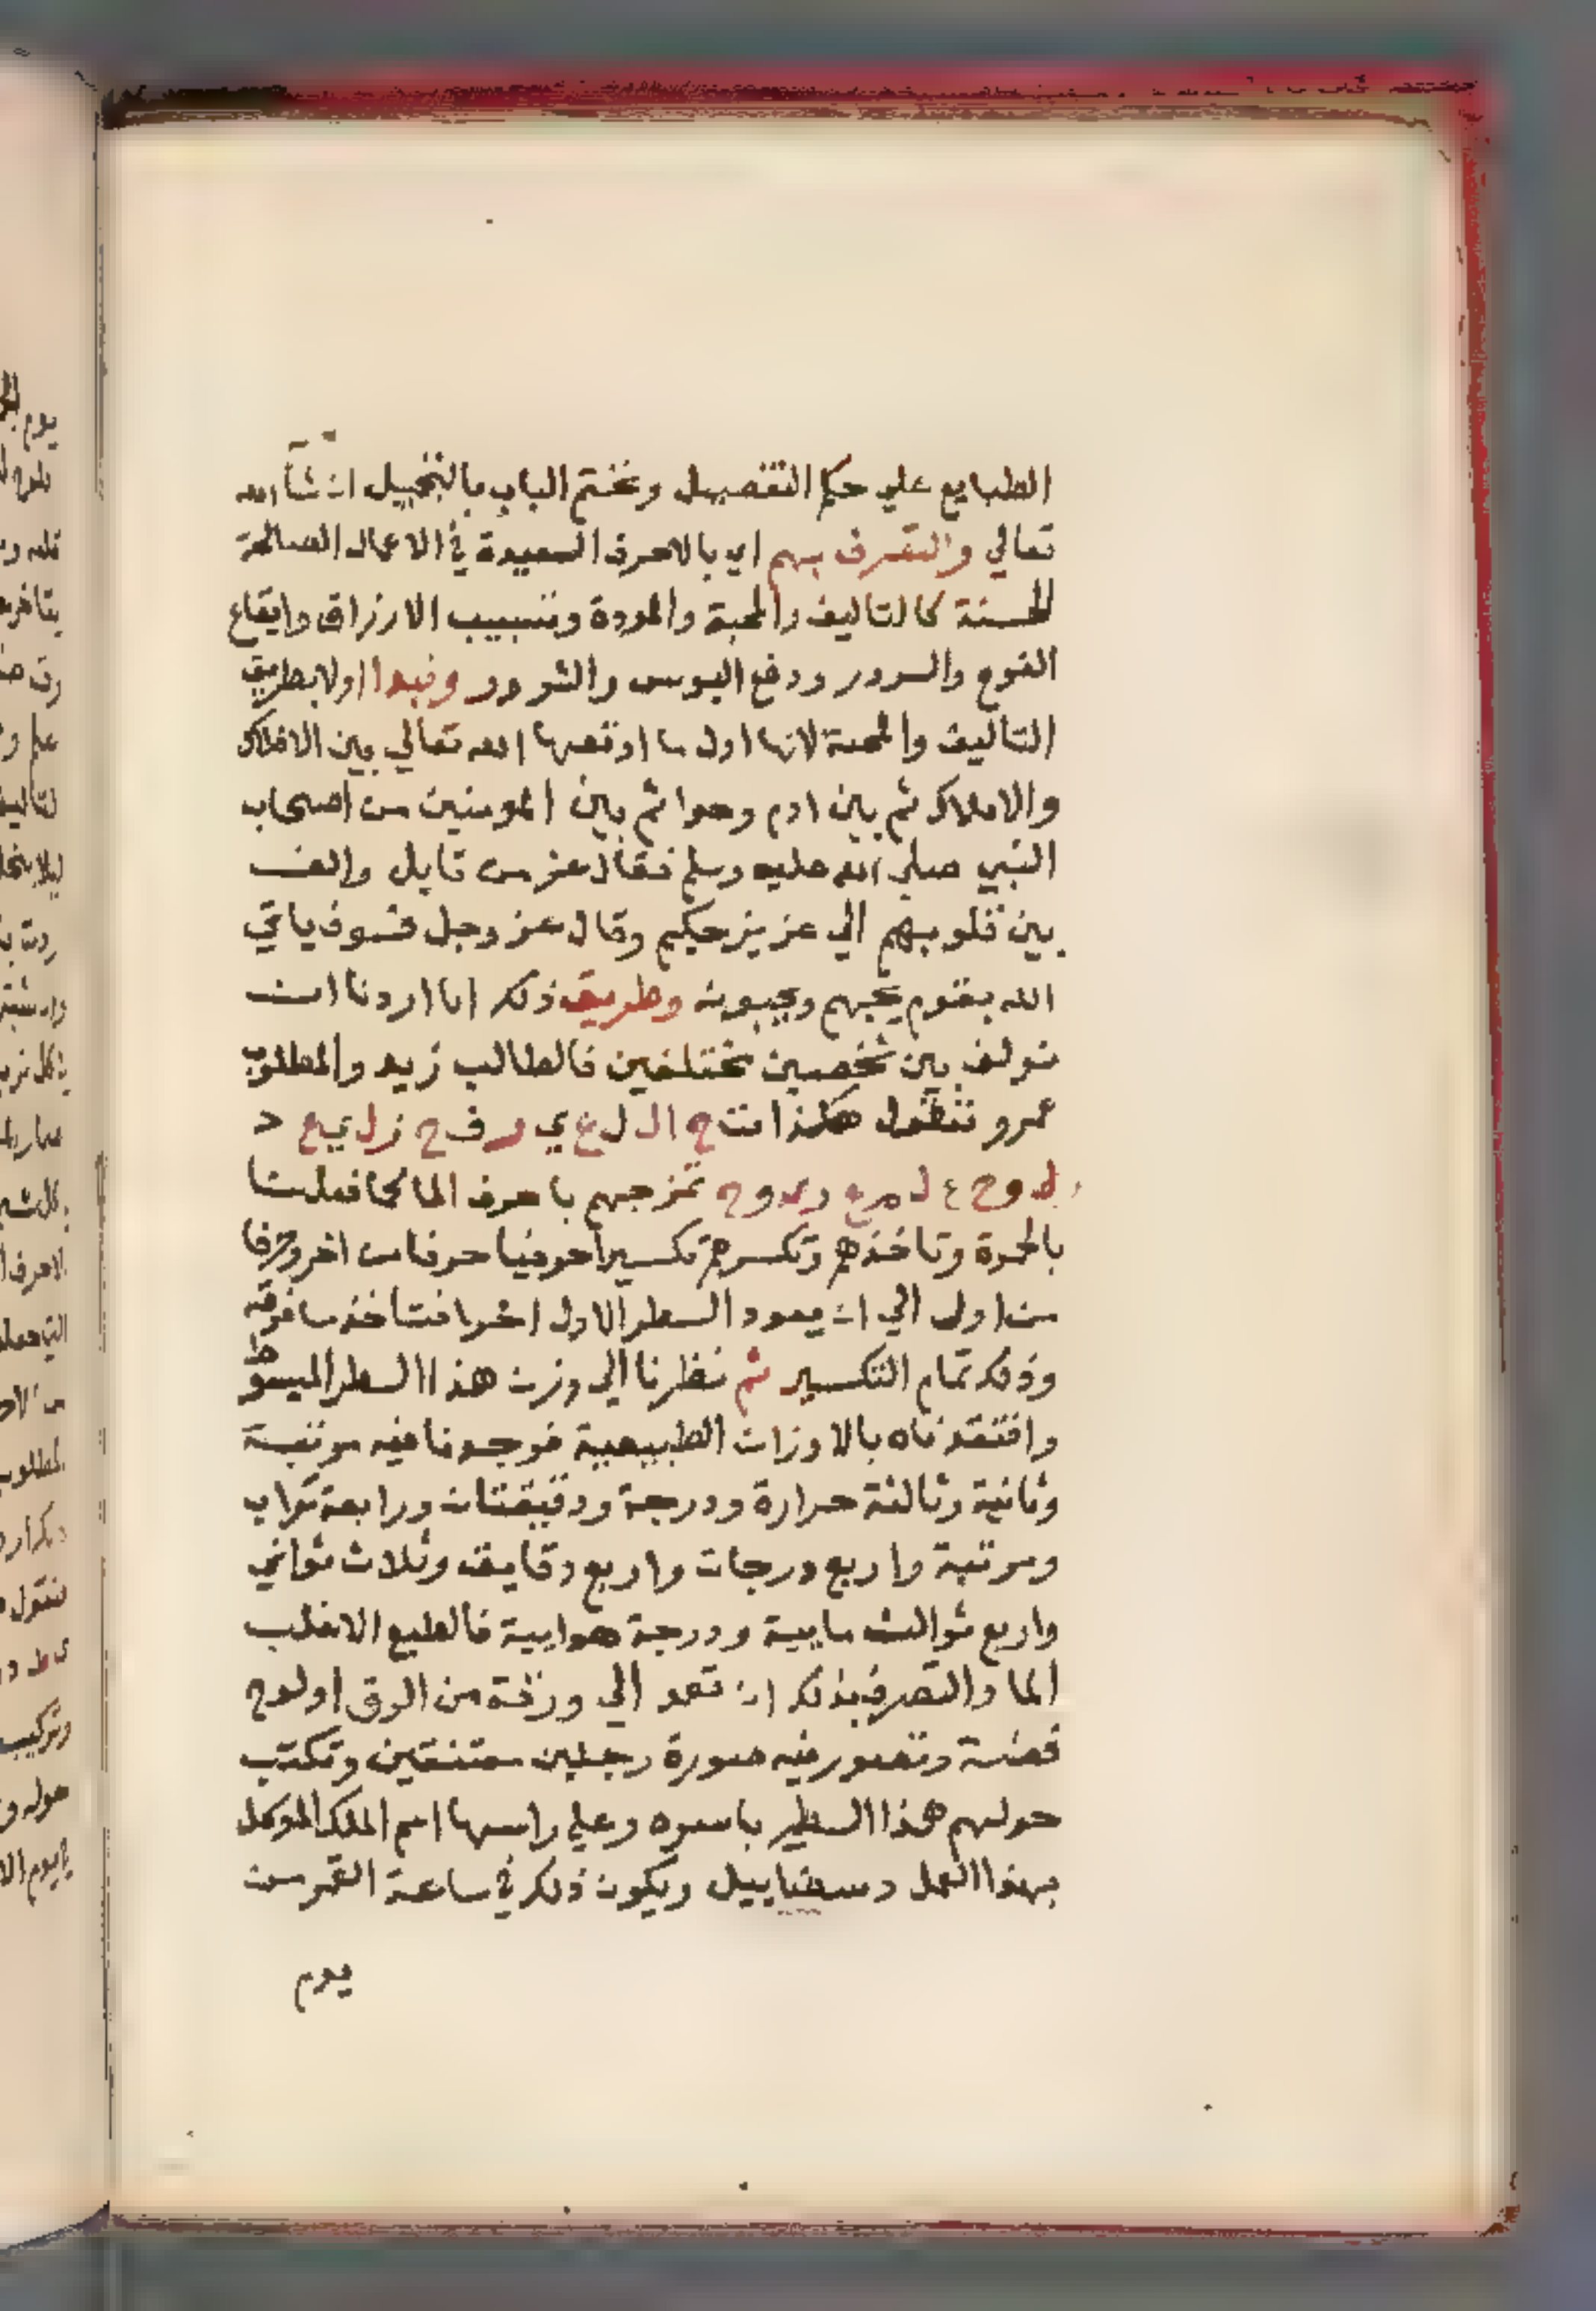 الطبايع علي حكم التفصيل ونختم الباب بالتخييل ان شاء الله
تعالي والتصرف بهم اي بالاحرف السعيدة في الاعمال الصالحة
الحسنة كالتاليف والمحبة والمودة وتسبيب الارزاق وايقاع
الفرح والسرور ودفع البوس والشرور ونبدا اولا بطريق
التاليف والمحبة لانها اول ما اوقعها الله تعالي بين الافلاك
والاملاك ثم بين ادم وحوا ثم بين المومنين من اصحاب
النبي صلي الله عليه وسلم فقال عز من قايل والف
بين قلوبهم الي عزيز حكيم وقال عز وجل فسوف ياتي
الله بقوم يحبهم ويحبونه وطريق ذلك انا اردنا ان
نولف بين شخصين مختلفين فالطالب زيد والمطلوب
عمرو فنقول هكذا
تمزجهم باحرف الما كما فعلت
بالحرة وتاخذهم وتكسرهم تكسيرا حرفيا حرفا من اخر وحرفا
من اول الي ان يعود السطر الاول اخرا فتاخذ ما فوقه
وذلك تمام التكسير ثم نظرنا الي وزن هذا السطر المبسوط
وافتقدناه بالاوزان الطبيعية فوجدنا فيه مرتبة
وثانية وثالثة حرارة ودرجة ودقيقتان ورابعة تراب
ومرتبة واربع درجات واربع دقايق وثلاث ثواني
واربع ثوالث مايية ودرجة هوايية فالطبع الاغلب
الما والتصرف بذلك ان تعمد الي ورقة من الورق او لوح
فضة وتصور فيه صورة رجلين معتنقين وتكتب
حولهم هذا السطر باسره وعلي راسها اسم الملك الموكل
بهذا العمل ويكون ذلك في ساعة القمر من
يوم